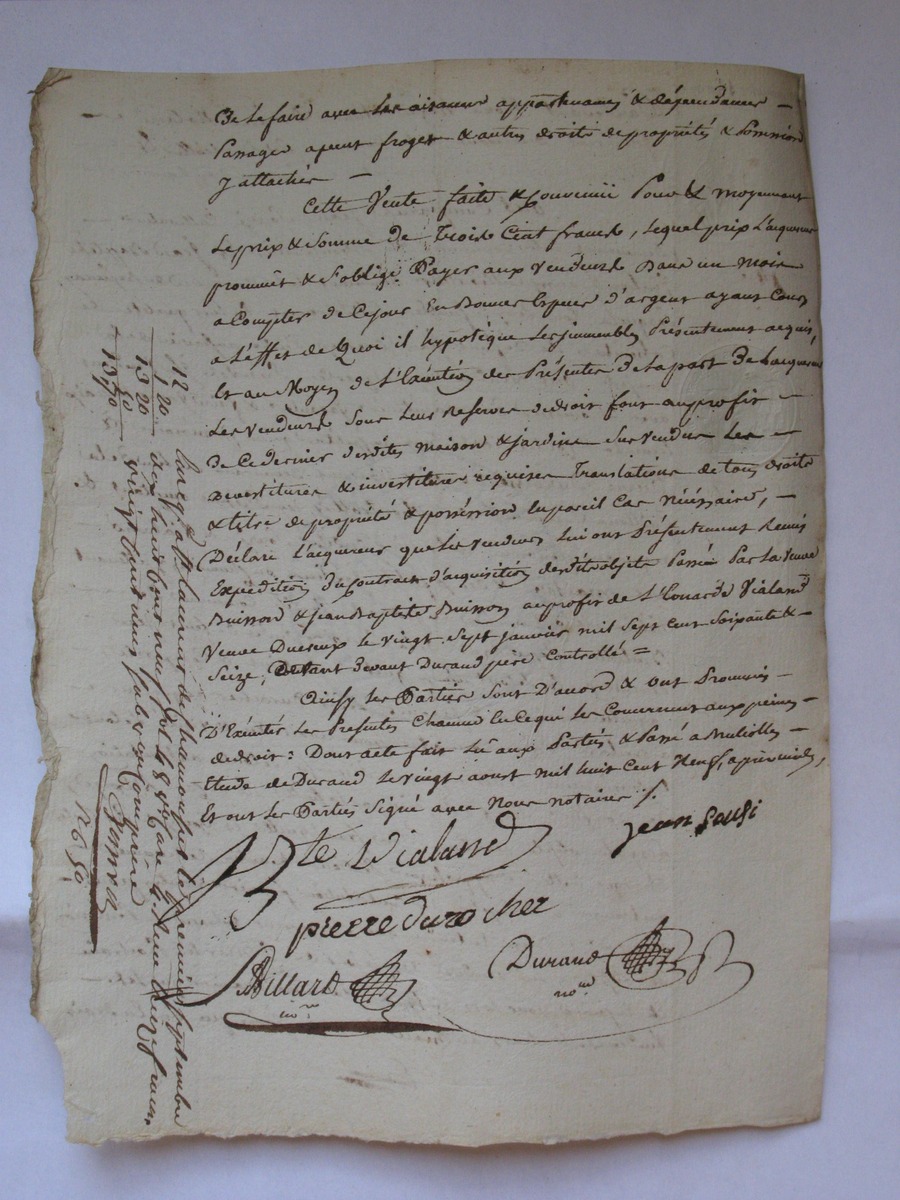 De le faire avec les aisances appartenances & dépendances —
Passages & autres droits de propriétés &
y attachés —
Cette Vente faite & Convenüe Pour & moyennant
Le prix & Somme de Trois Cent francs, lequel prix L'acquereur
prommet & S'oblige Payer aux Vendeurs Dans un mois
a Compter de Cejour En Bonnes Especes d'argent ayant Cours
a L'effet de Quoi il hypotèque Les jmmeubles Présentement acquis,
Et au Moyen de L'Exéution des Présentes de la part De Lacquereur
Les Vendeurs Sous Leurs Reserves de droit font au profit —
De Ce dernier desdites maison & jardins Sus vendus Les —
Devestitures & investitures requises Translations de tous droits
& titre de propriété & posséssion En pareil Cas Nécéssaire, —
Déclare L'acquereur que les vendeurs Lui ont Présentement Remis
Expédition du Contract d'acquisition desdits objets Passé Par La Veuve
Buisson & jean Baptiste Buisson au profit de Vialand
Veuve le vingt Sept janvier mil Sept Cent Soixante &
Seize, devant Durand père Controllé =
Ainsy les Parties Sont D'acord & ont Promis —
D'Exéuter les Présentes Chacun En Ce qui les Concernent aux peines —
de droit : Dont acte fait Lû aux Parties & Passé a
Etude de Durand Le vingt aoust mil huit Cent Neuf, après midi,
Et ont les Parties Signé avec Nous notaires /.
jean
Bte Vialand
pierre durocher
Durand
Billard
nore
12
1 20
13 20
1 3
Enreg. a St Laurent de Chamousset le premier septembre
dix huit cent neuf fol. 48 Reçu treize francs
vingt centimes subvention comprise